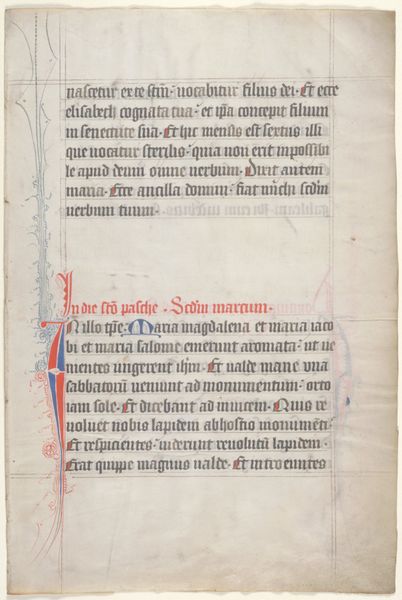 nascetur ex te stm̄: vocabitur filius dei. Et ecce
elisabeth cognata tua: et ip̄a concepit filium
in senectute sua. Et hic mensis est sextus illi
que vocatur sterilis: quia non erit impossibi
le apud deum omne verbum. Dixit autem
maria. Ecce ancilla domini: fiat m̄chi sc̄dm
verbum tuum.
In die sc̄o pasche. Scd̄m marcum.
In illo tp̄e. Maria magdalena et maria iaco
bi et maria salome emerunt aromata: ut ve
nientes ungerent ihm̄. Et valde mane una
sabbatorū veniunt ad monumentum: orto
iam sole. Et dicebant ad invicem. Quis re
voluet nobis lapidem ab hostio monumēti:
Et respicientes: viderunt revolutū lapidem.
Erat quippe magnus valde. Et introeuntes